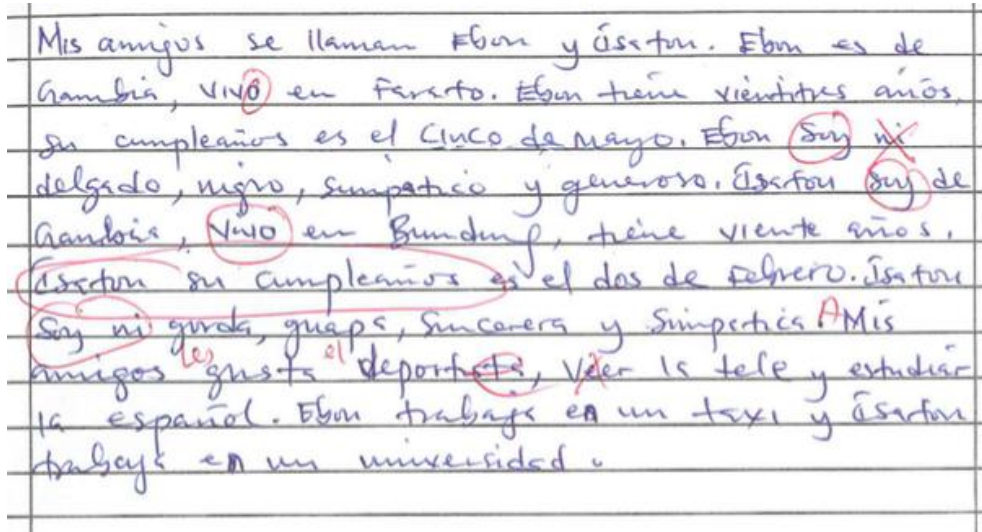 Mis amigos se llaman Ebou y Isatou. Ebou es de
Gambia, vivo en Farato. Ebou tiene vientitres años,
su cumpleaños es el cinco de mayo. Ebou soy ni
delgado, nigro, simpatico y generoso. Isatou soy de
Gambia, vivo en Bundung, tiene viente años.
Isatou su cumpleaños es el dos de Febrero. Isatou
soy ni gorda, guapa, sincerera y simpatica. A Mis
amigos les gusta el deportista, veer la tele y estudiar
la español. Ebou trabaja en un taxi y Isatou
trabaja en un universidad.